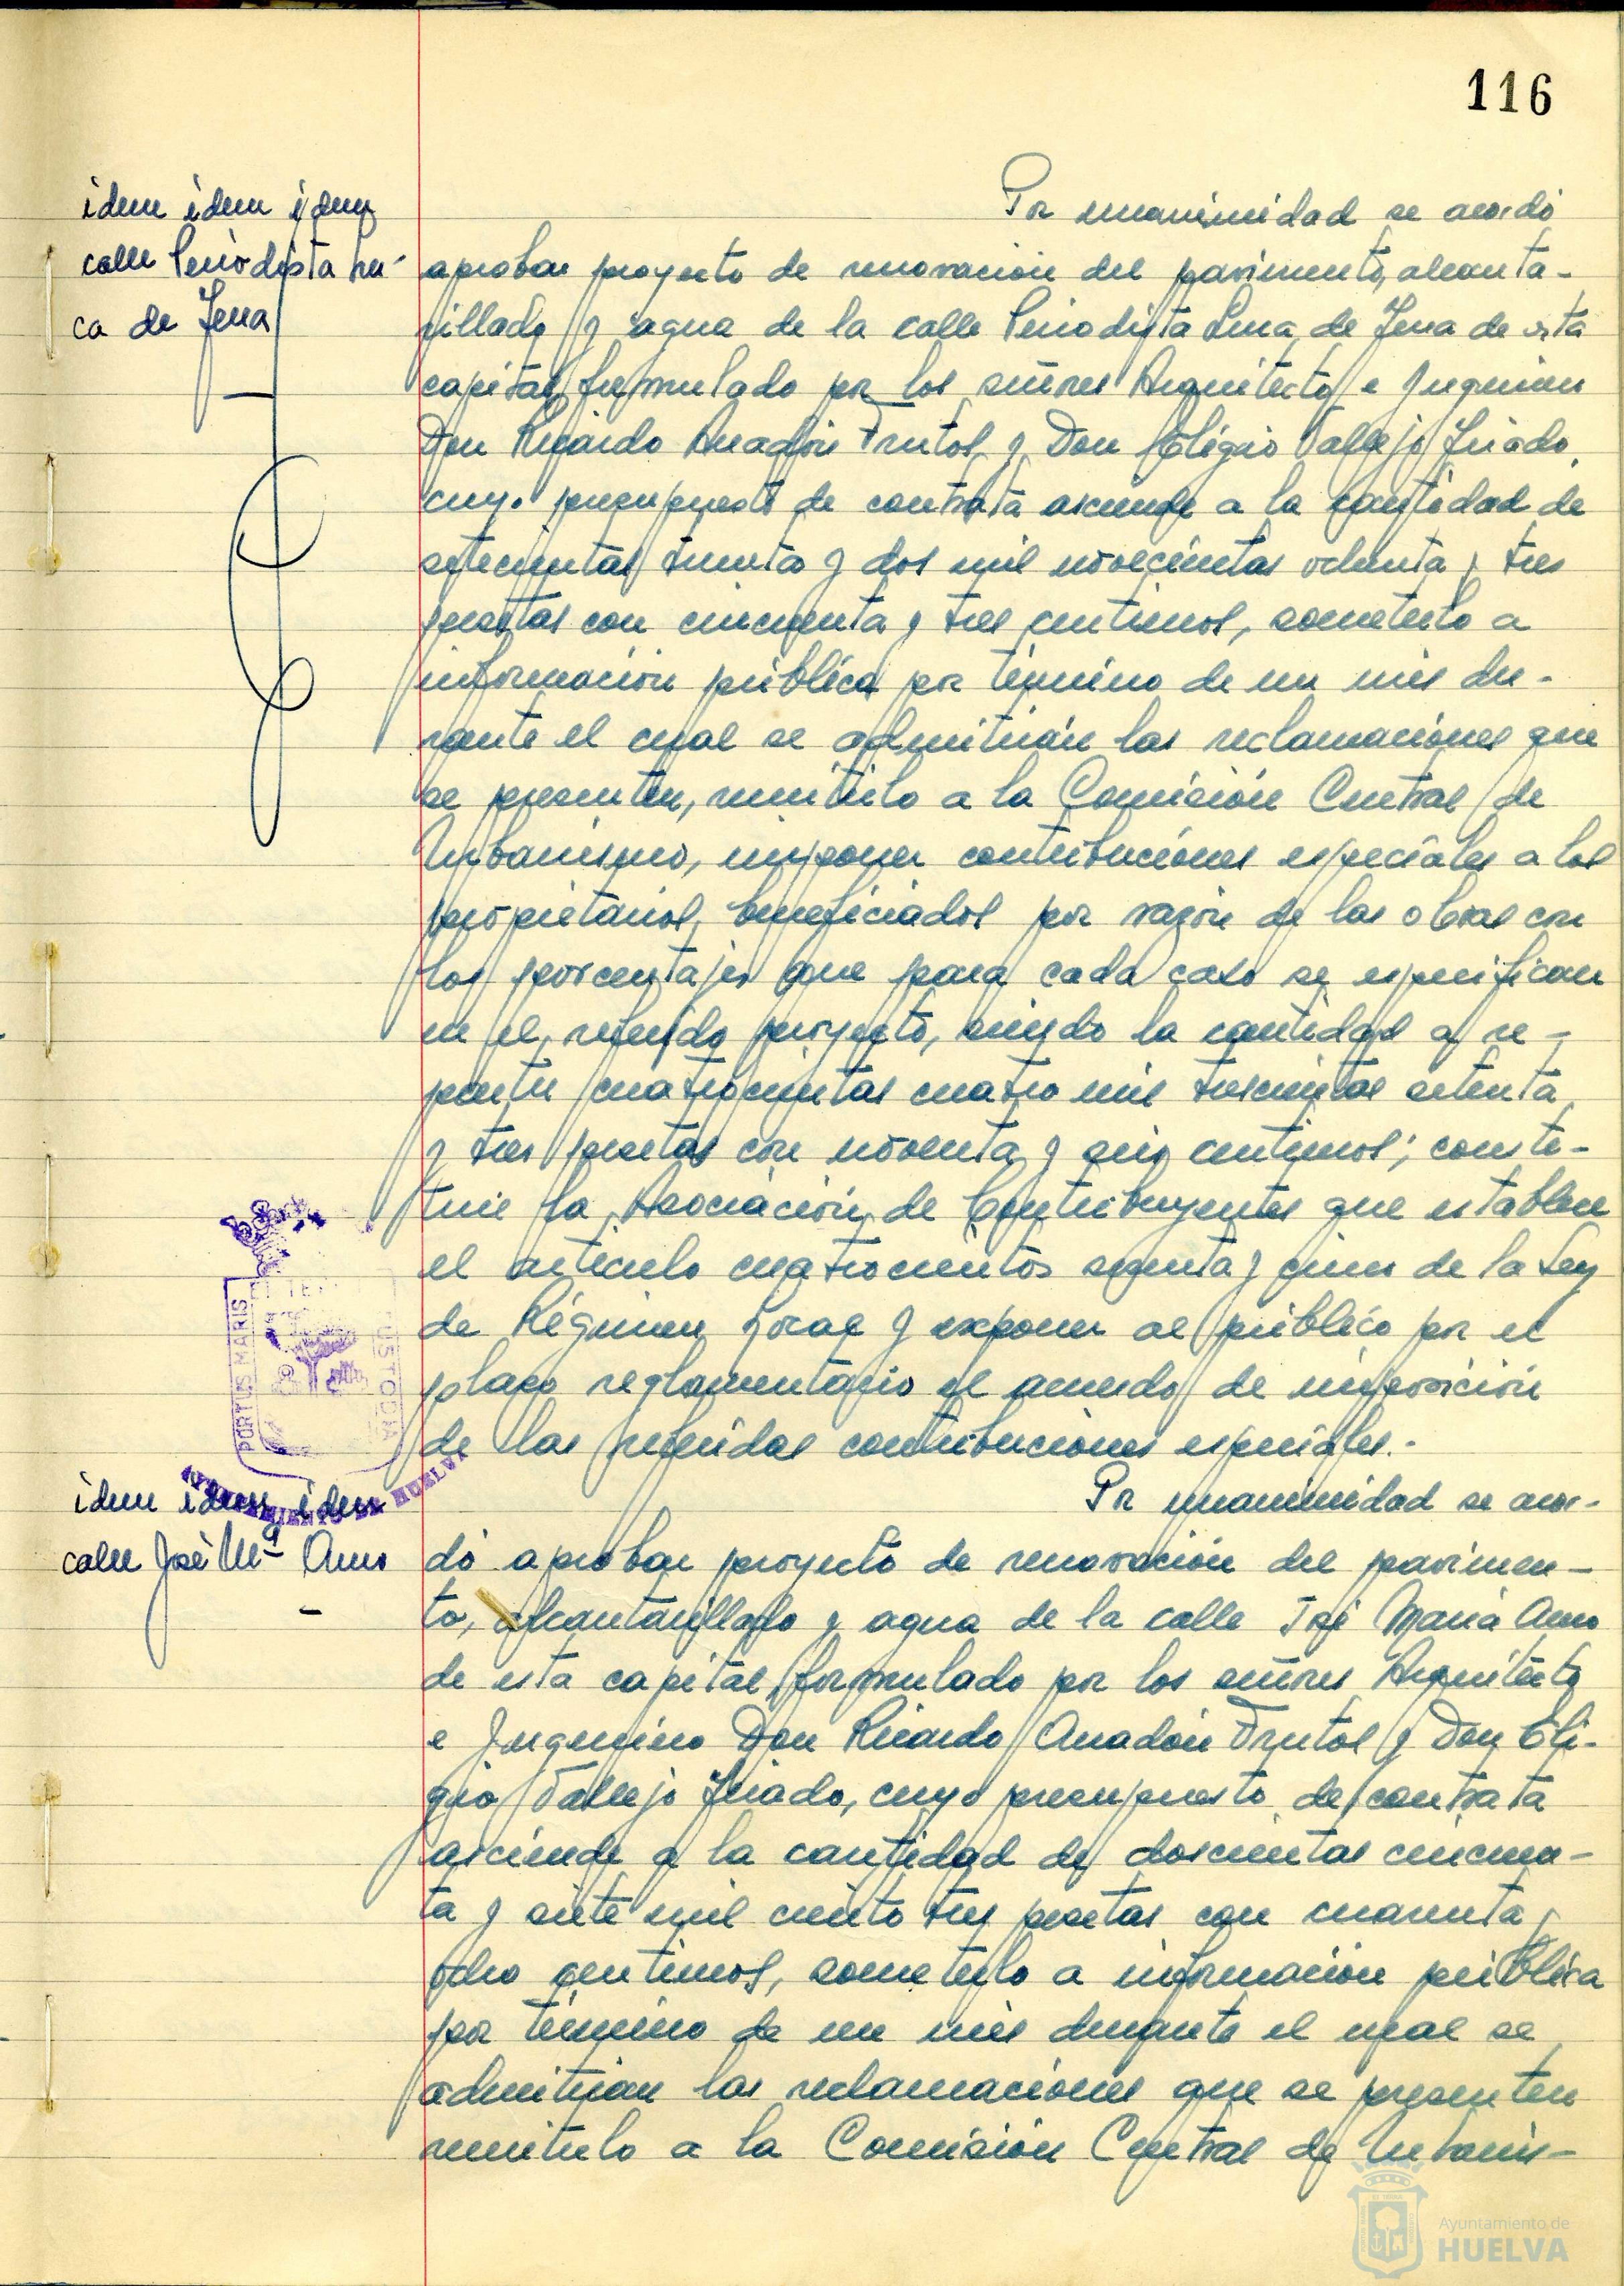 116
idem idem idem
calle Periodista Lu-
ca de Tena
Por unanimidad se acordó
aprobar proyecto de renovación del pavimento, alcanta-
rillado y agua de la calle Periodista Luca de Tena de esta
capital, formulado por los señores Arquitecto e Ingeniero
Don Ricardo Anadón Frutos y Don Eligio Vallejo Triado,
cuyo presupuesto de contrata asciende a la cantidad de
setecientas treinta y dos mil novecientas ochenta y tres
pesetas con cincuenta y tres centimos, someterlo a
información pública por término de un mes du-
rante el cual se admitirán las reclamaciones que
se presenten, remitirlo a la Comisión Central de
Urbanismo, imponer contribuciones especiales a los
propietarios beneficiados por razón de las obras con
los porcentajes que para cada caso se especifican
en el referido proyecto, siendo la cantidad a re-
partir cuatrocientas cuatro mil trescientas setenta
y tres pesetas con noventa y seis centimos; consti-
tuir la Asociación de Contribuyentes que establece
el articulo cuatrocientos sesenta y cinco de la Ley
de Régimen Local y exponer al público por el
plazo reglamentario el acuerdo de imposición
de las referidas contribuciones especiales.-
PORTUS MARIS
CUSTODIA
AYUNTAMIENTO DE HUELVA
idem idem idem
calle José Mª Amo
Por unanimidad se acor-
dó aprobar proyecto de renovación del pavimen-
to, alcantarillado y agua de la calle José María Amo
de esta capital, formulado por los señores Arquitecto
e Ingeniero Don Ricardo Anadón Frutos y Don Eli-
gio Vallejo Triado, cuyo presupuesto de contrata
asciende a la cantidad de doscientas cincuen-
ta y siete mil ciento tres pesetas con cuarenta y
ocho centimos, someterlo a información pública
por término de un mes durante el cual se
admitirán las reclamaciones que se presenten
remitirlo a la Comisión Central de Urbanis-
Ayuntamiento de
HUELVA